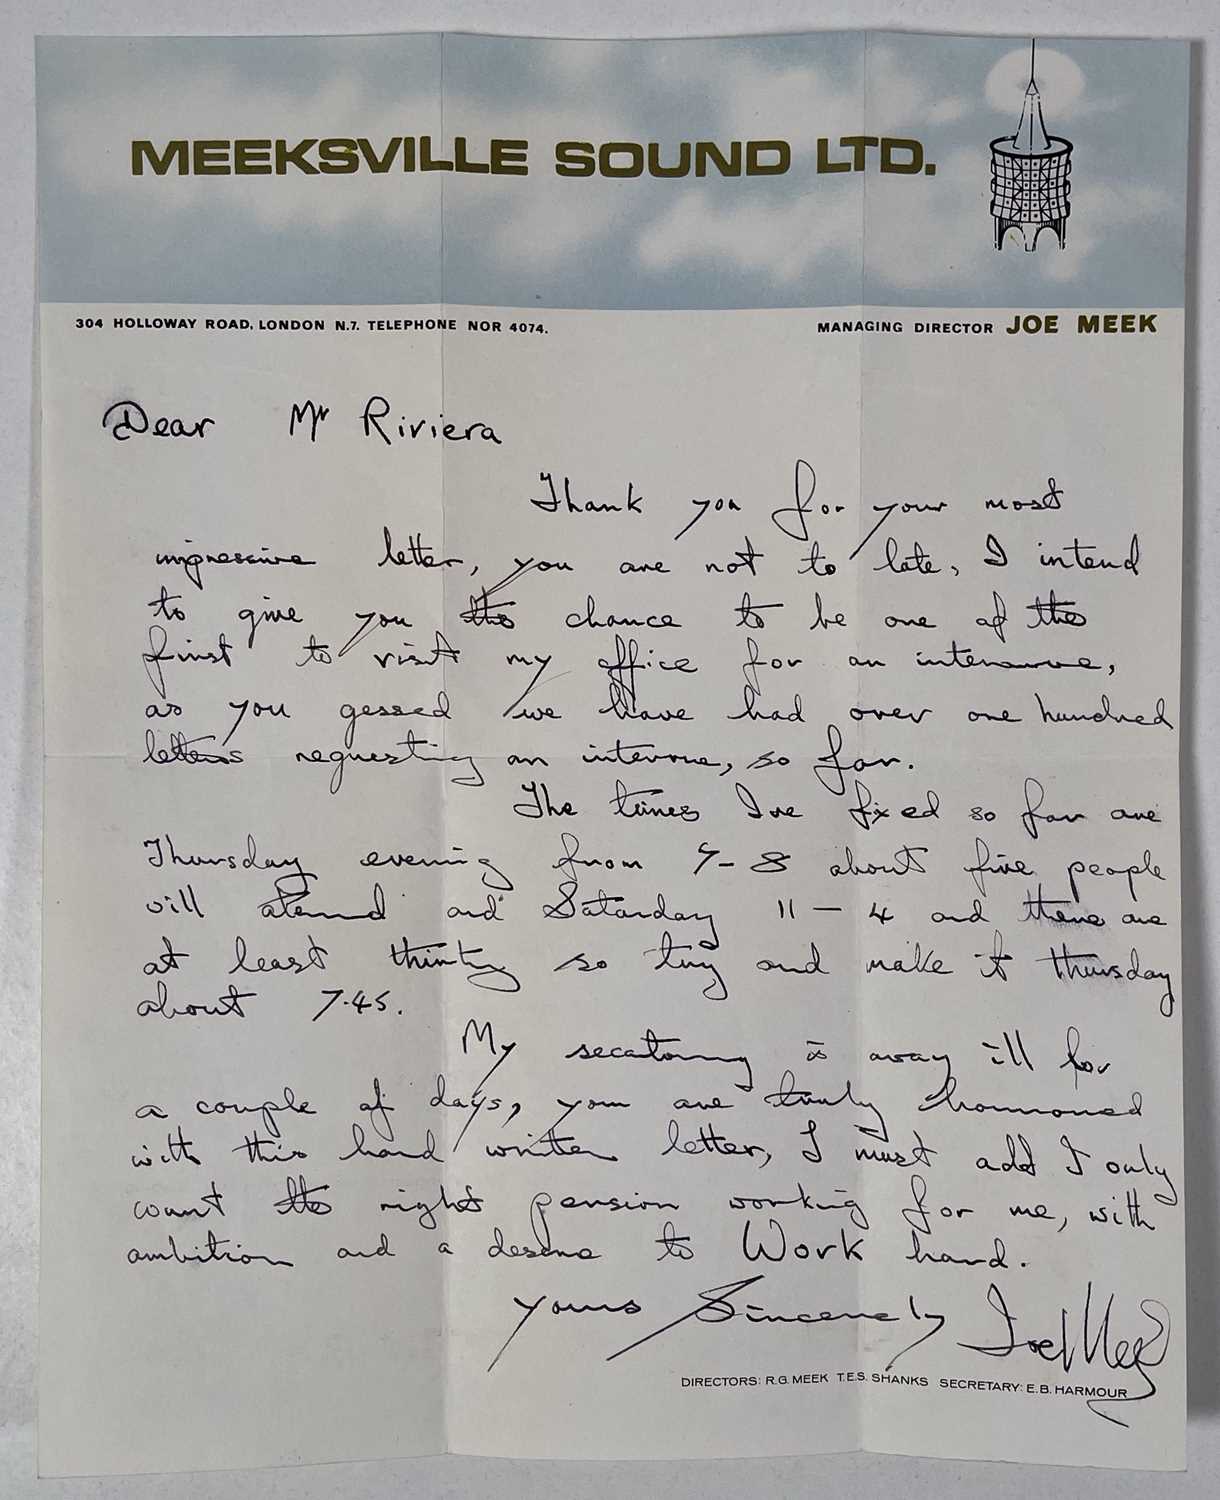 MEEKSVILLE SOUND LTD.
304 HOLLOWAY ROAD, LONDON N.7. TELEPHONE NOR 4074.
MANAGING DIRECTOR JOE MEEK
Dear Mr Riviera
Thank you for your most
impressive letter, you are not to late, I intend
to give you the chance to be one of the
first to visit my office for an interveue,
as you gessed we have had over one hundred
letters requesting an interveue, so far.
The times Ive fixed so far are
Thursday evening from 7-8 about five people
will atennd and Saturday 11 - 4 and there are
at least thirty so try and make it thursday
about 7.45.
My secatorary is away ill for
a couple of days, your are truly honnoured
with this hand written letter, I must add I only
want the right pension working for me, with
ambition and a desire to Work hard.
Yours Sincerely Joe Meek
DIRECTORS: R.G. MEEK T.E.S. SHANKS SECRETARY: E.B. HARMOUR